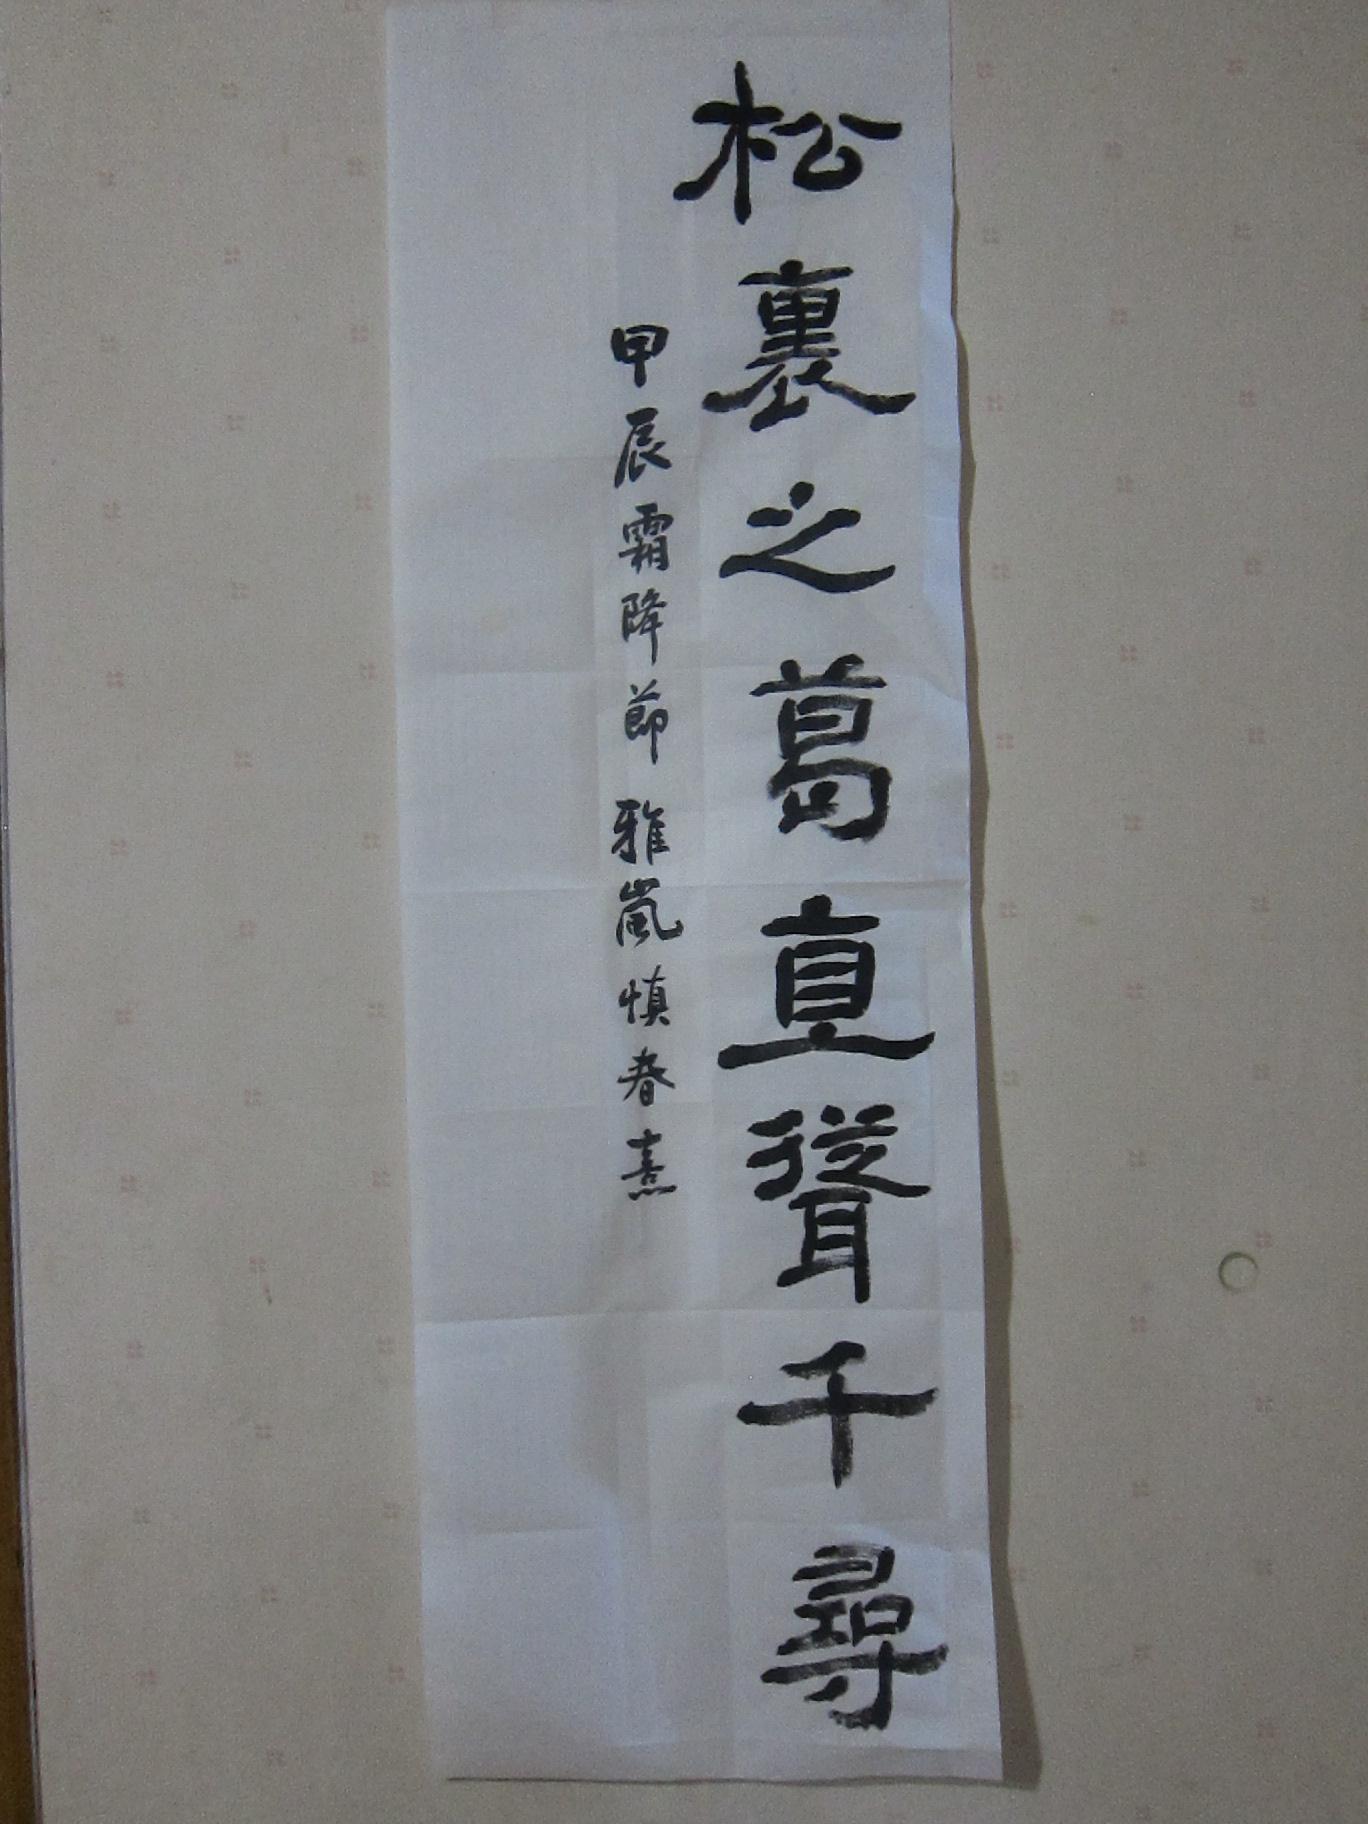 松裏之葛直聳千尋
甲辰霜降節 雅嵐慎春熹